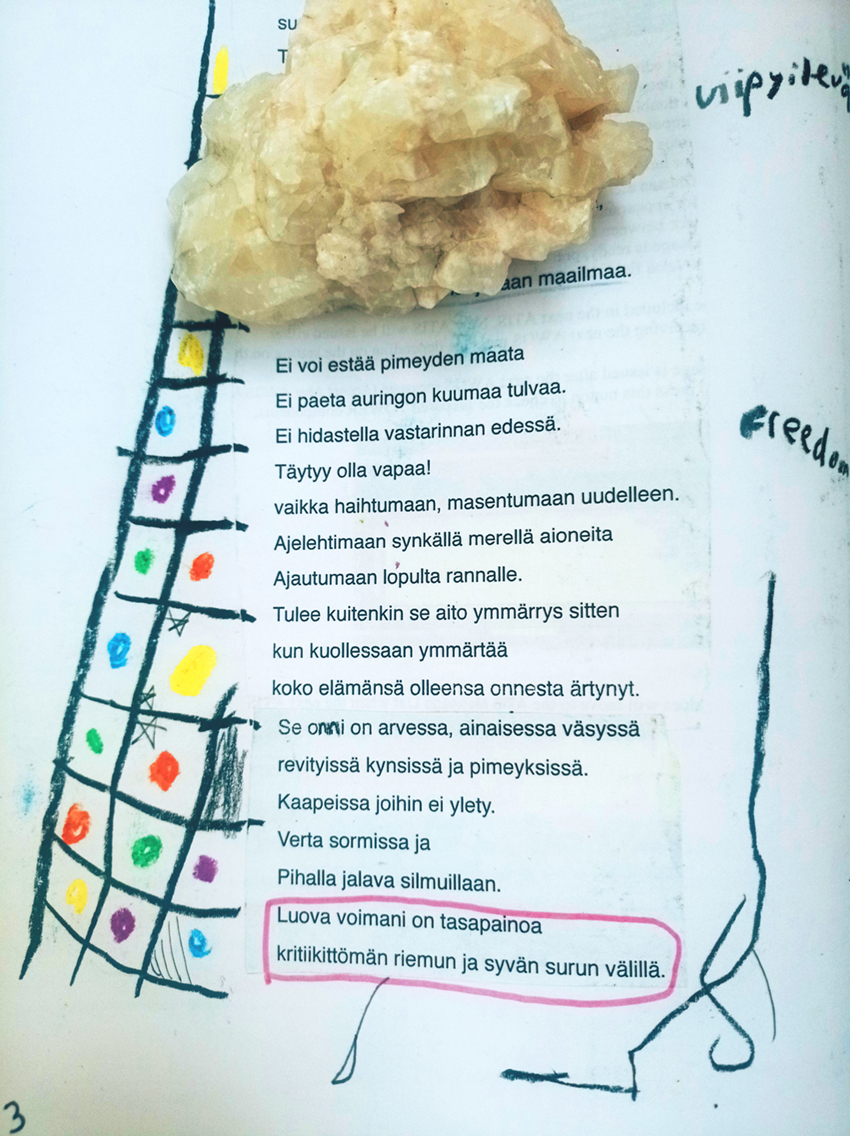 su
T
viipyilevä
aan maailmaa.
Ei voi estää pimeyden maata
Ei paeta auringon kuumaa tulvaa.
Ei hidastella vastarinnan edessä.
Freedom
Täytyy olla vapaa!
vaikka haihtumaan, masentumaan uudelleen.
Ajelehtimaan synkällä merellä aioneita
Ajautumaan lopulta rannalle.
Tulee kuitenkin se aito ymmärrys sitten
kun kuollessaan ymmärtää
koko elämänsä olleensa onnesta ärtynyt.
Se onni on arvessa, ainaisessa väsyssä
revityissä kynsissä ja pimeyksissä.
Kaapeissa joihin ei ylety.
Verta sormissa ja
Pihalla jalava silmuillaan.
Luova voimani on tasapainoa
kritiikittömän riemun ja syvän surun välillä.
3